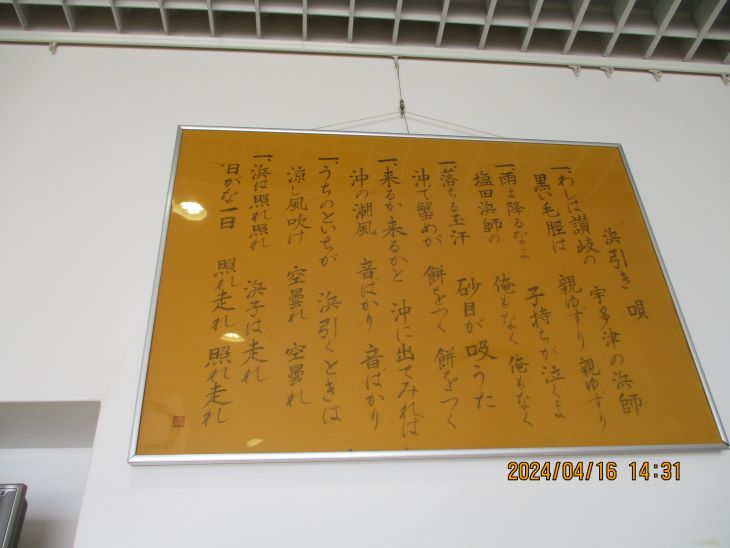 浜引き唄
一、わしは讃岐の 宇多津の浜師
黒い毛脛は 親ゆずり 親ゆずり
一、雨よ降るなよ 子持ちが泣くよ
塩田浜師の 俺もなく 俺もなく
一、落ちる玉汗 砂目が吸うた
沖で蟹めが 餅をつく 餅をつく
一、来るか来るかと 沖に出てみれば
沖の潮風 音ばかり 音ばかり
一、うちのといちが 浜引くときは
涼し風吹け 空曇れ 空曇れ
一、浜は照れ照れ 浜子は走れ
日がな一日 照れ走れ 照れ走れ
2024/04/16 14:31